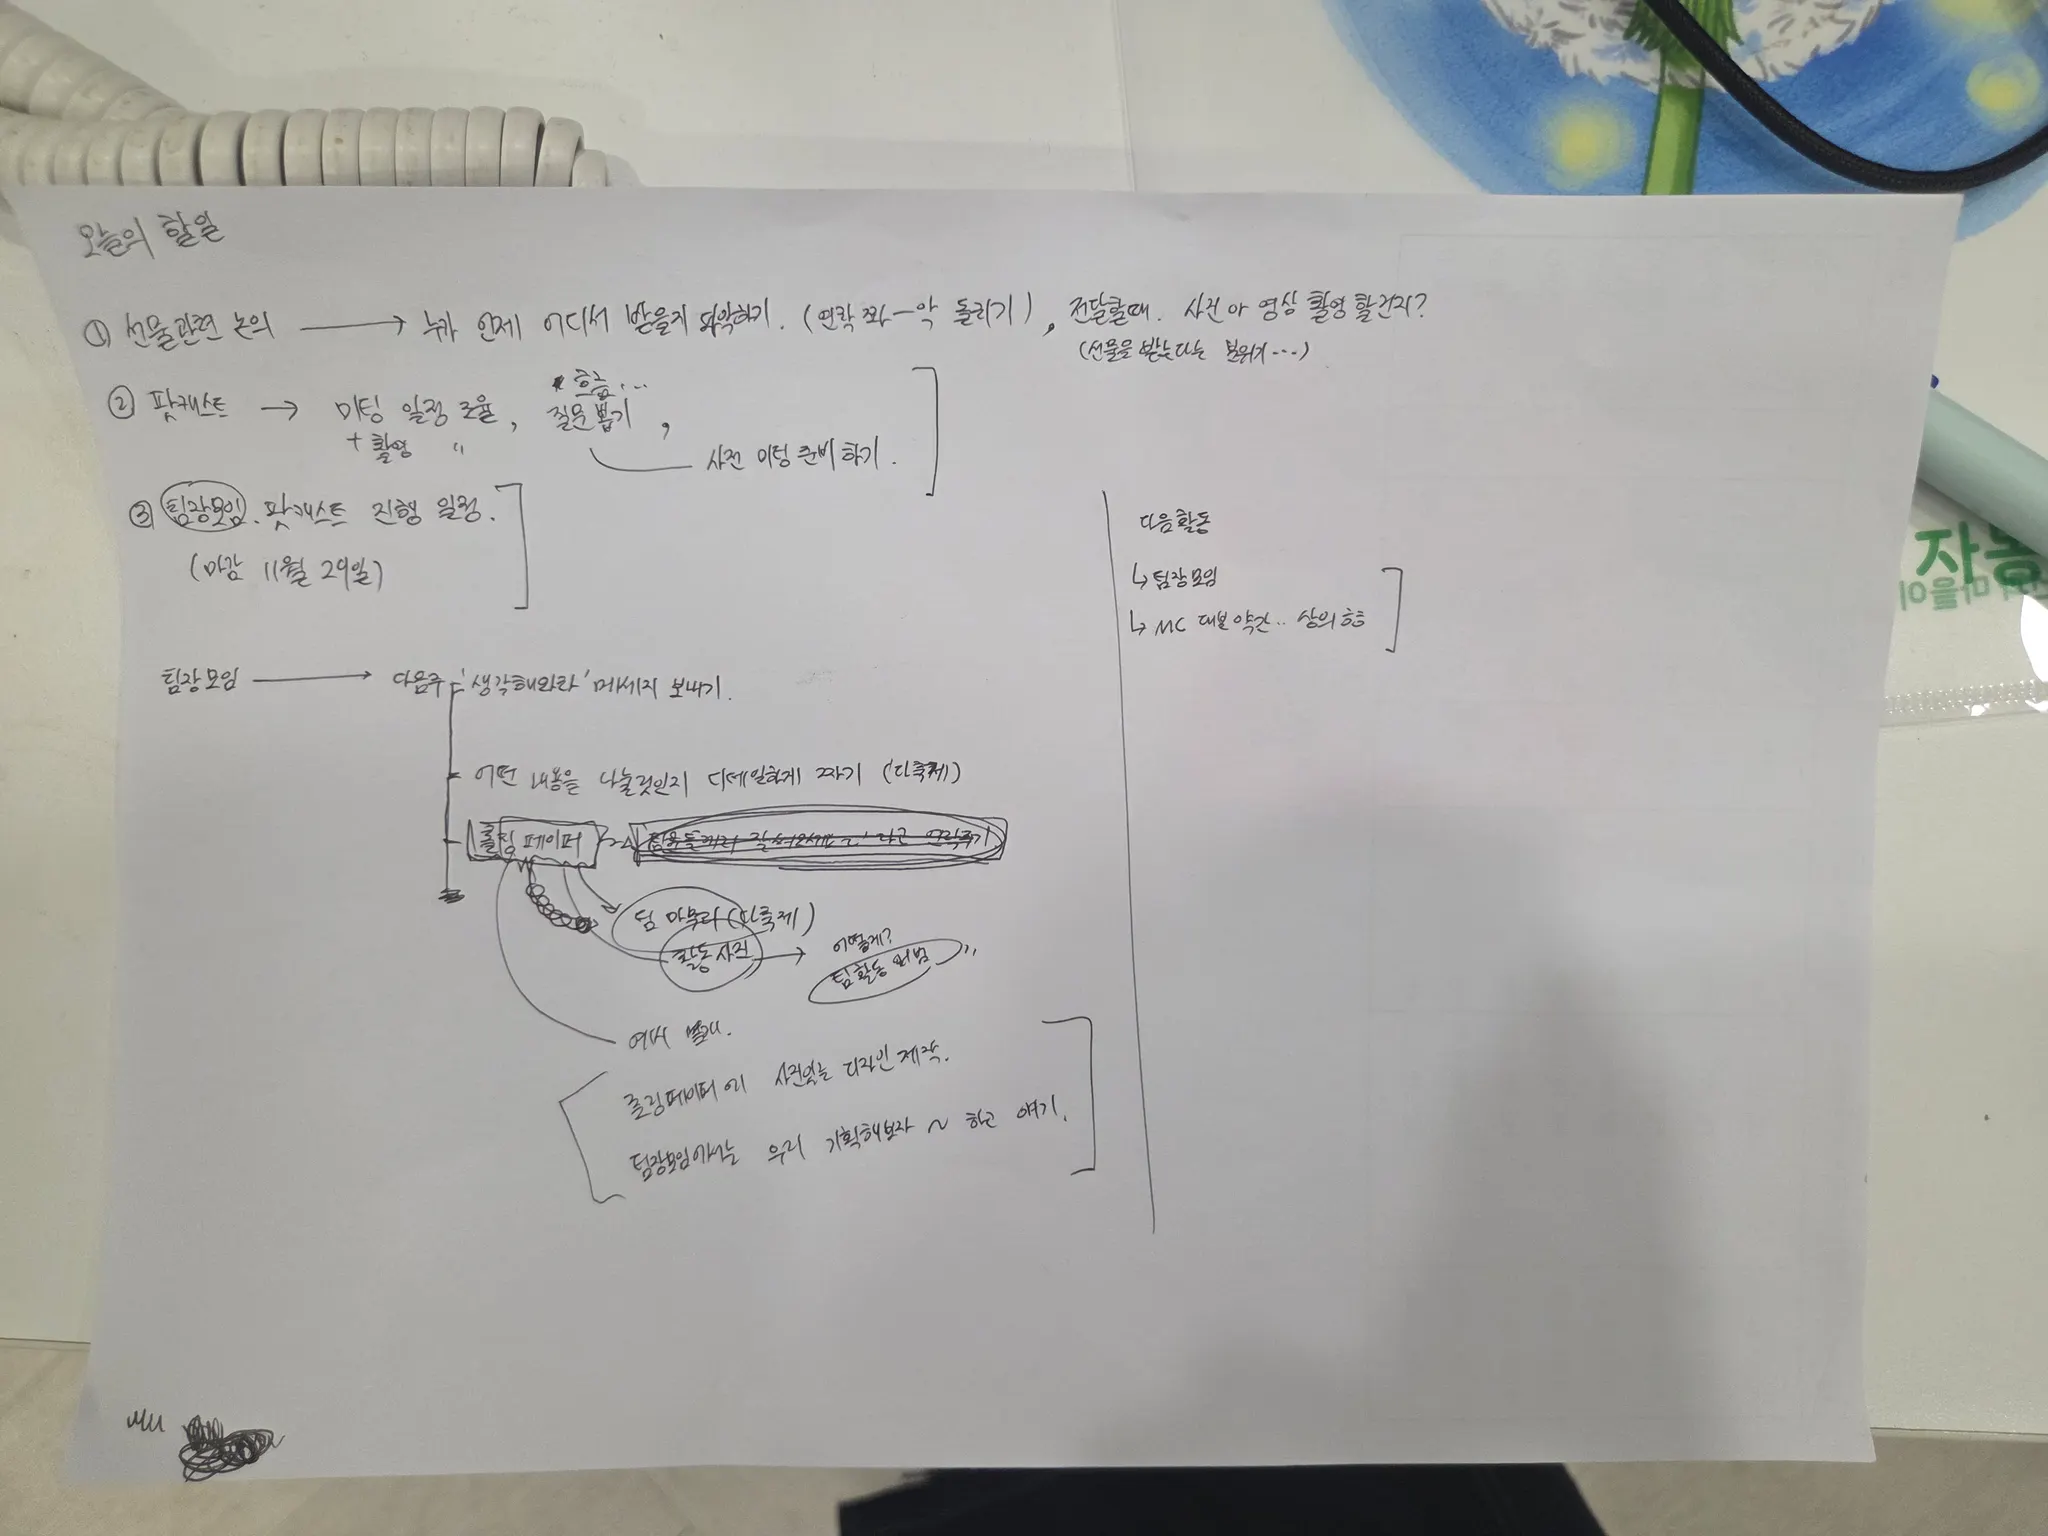 오늘의 할일
① 선물관련 논의 → 누가 언제 어디서 받을지 파악하기. (연락 쫘-악 돌리기), 전달할때. 사진이 영상 촬영할건지?
(선물을 받는다는 분위기…)
흠…
② 팟캐스트 → 미팅 일정 조율, 질문 뽑기,
+ 촬영 〃
사전 미팅 준비하기.
③ 팀장모임. 팟캐스트 진행 일정.
(마감 11월 29일)
다음활동
↳ 팀장모임
↳ MC 대본 약간.. 상의 흠흠
팀장모임 → 다음주 '생각해와라' 메세지 보내기.
어떤 내용을 나눌것인지 디테일하게 짜기 (다축제)
롤링 페이퍼
팀 마무리 (다축제)
활동사진 → 어떻게?
팀활동
여서 별개.
롤링페이퍼에 사진있는 디자인 제작.
팀장모임에서는 우리 기획해보자 ~ 하고 얘기.
자동